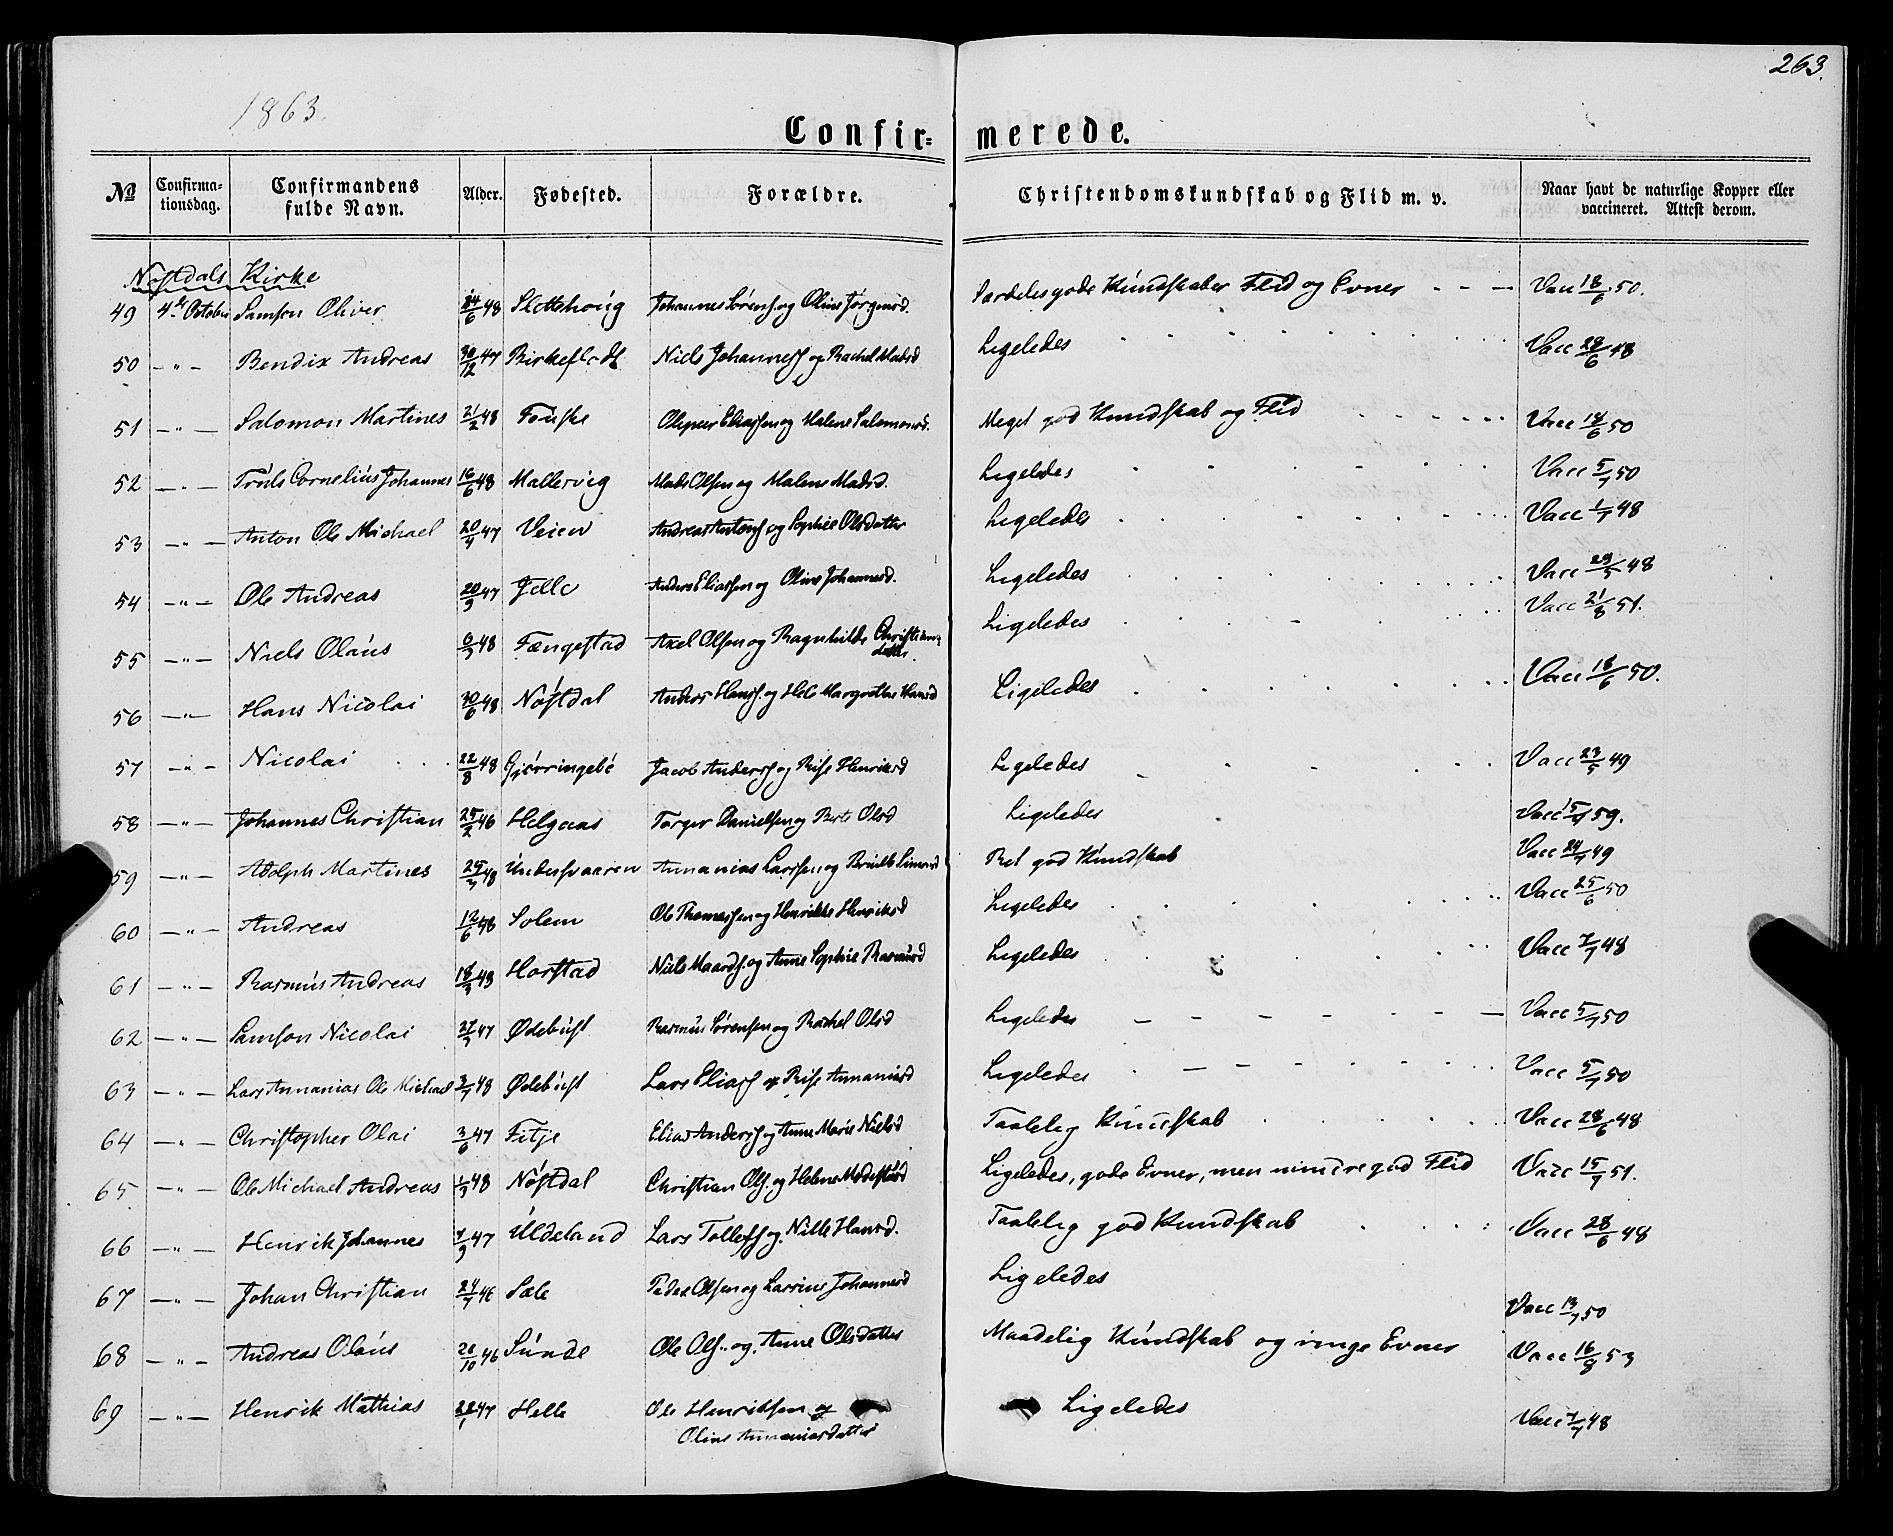 263.
1863.
Confir= merede.
№ Confirma-tionsdag. Confirmandens fulde Navn. Alder. Fødested. Forældre. Christendomskundskab og Flid m. v. Naar havt de naturlige Kopper eller vaccineret. Attest derom.
Nøstdals Kirke
49 4de October Samson Oliver 24/6 48 Slettehoug Johannes Sørens. og Oline Jørgensd. Særdeles gode Kundskaber Flid og Evner - - - Vac 18/6 50.
50 -"- Bendix Andreas 30/12 47 Birkeflodt Niels Johanness og Rachel Madsd Ligeledes Vacc 28/6 48
51 -"- Salomon Martines 21/2 48 Fouske Olepeer Eliassen og Malene Salomonsd. Meget god Kundskab og Flid Vacc 18/6 50
52 -"- Truls Cornelius Johannes 16/6 48 Mallervig Mads Olsen og Malene Madsd. Ligeledes Vacc 5/7 50
53 -"- Anton Ole Michael 20/4 47 Veien Andreas Antons og Sophie Olsdatter Ligeledes Vacc 1/7 48
54 -"- Ole Andreas 20/9 47 Jelle Anders Eliassen og Oline Johannesd. Ligeledes Vacc 29/5 48
55 -"- Niels Olaus 6/3 48 Fængestad Axel Olsen og Ragnhilde Christian-datter Ligeledes Vacc 21/8 51.
56 -"- Hans Nicolai 30/6 48 Nøstdal Anders Hans. og Hele Margrethe Hansd Ligeledes Vacc 18/6 50.
57 -"- Nicolai 22/8 48 Gjørringebø Jacob Anderss og Rise Henriksd Ligeledes Vacc 23/5 49
58 -"- Johannes Christian 25/2 46 Helgaas Torger Danielsen og Berte Olsd Ligeledes Vacc 15/7 59.
59 -"- Adolph Martines 25/3 48 Undersvaaren Annanias Larssen og Brithe Simonsd Ret god Kundskab Vacc 24/7 49
60 -"- Andreas 12/6 48 Solem Ole Thomassen og Henrikke Henriksd Ligeledes Vacc 25/6 50
61 -"- Rasmus Andreas 18/3 48 Horstad Niels Maards. og Anne Sophie Rasmusd Ligeledes Vacc 7/7 48
62 -"- Samson Nicolai 27/3 47 Ødebust Rasmus Sørensen og Rachel Olsd Ligeledes Vacc 5/7 50
63 -"- Lars Annanias Ole Michael 3/7 48 Ødebust Lars Eliass og Rise Annaniasd Ligeledes Vacc 5/7 50
64 -"- Christopher Olai 3/6 47 Fitje Elias Anderss og Anne Marie Nielsd Taalelig Kundskab Vacc 28/6 48
65 -"- Ole Michael Andreas 1/3 48 Nøstdal Christian Ols. og Helene Modestusd Ligeledes, gode Evner, men mindre god Flid Vacc 15/7 51.
66 -"- Henrik Johannes 7/9 47 Uldeland Lars Tollefs og Nille Hansd. Taalelig god Kundskab Vacc 28/6 48
67 -"- Johan Christian 24/7 46 Sæle Peder Olsen og Larrine Johannesd Ligeledes Vacc 13/7 50
68 -"- Andreas Olaus 28/10 46 Sunde Ole Ols.. og. Anne Olsdatter Maadelig Kundskab og ringe Evner Vacc 16/8 53
69 -"- Henrik Mathias 22/1 47 Helle Ole Henriksen og Ligeledes Vacc 7/7 48
Oline Annaniasdatter